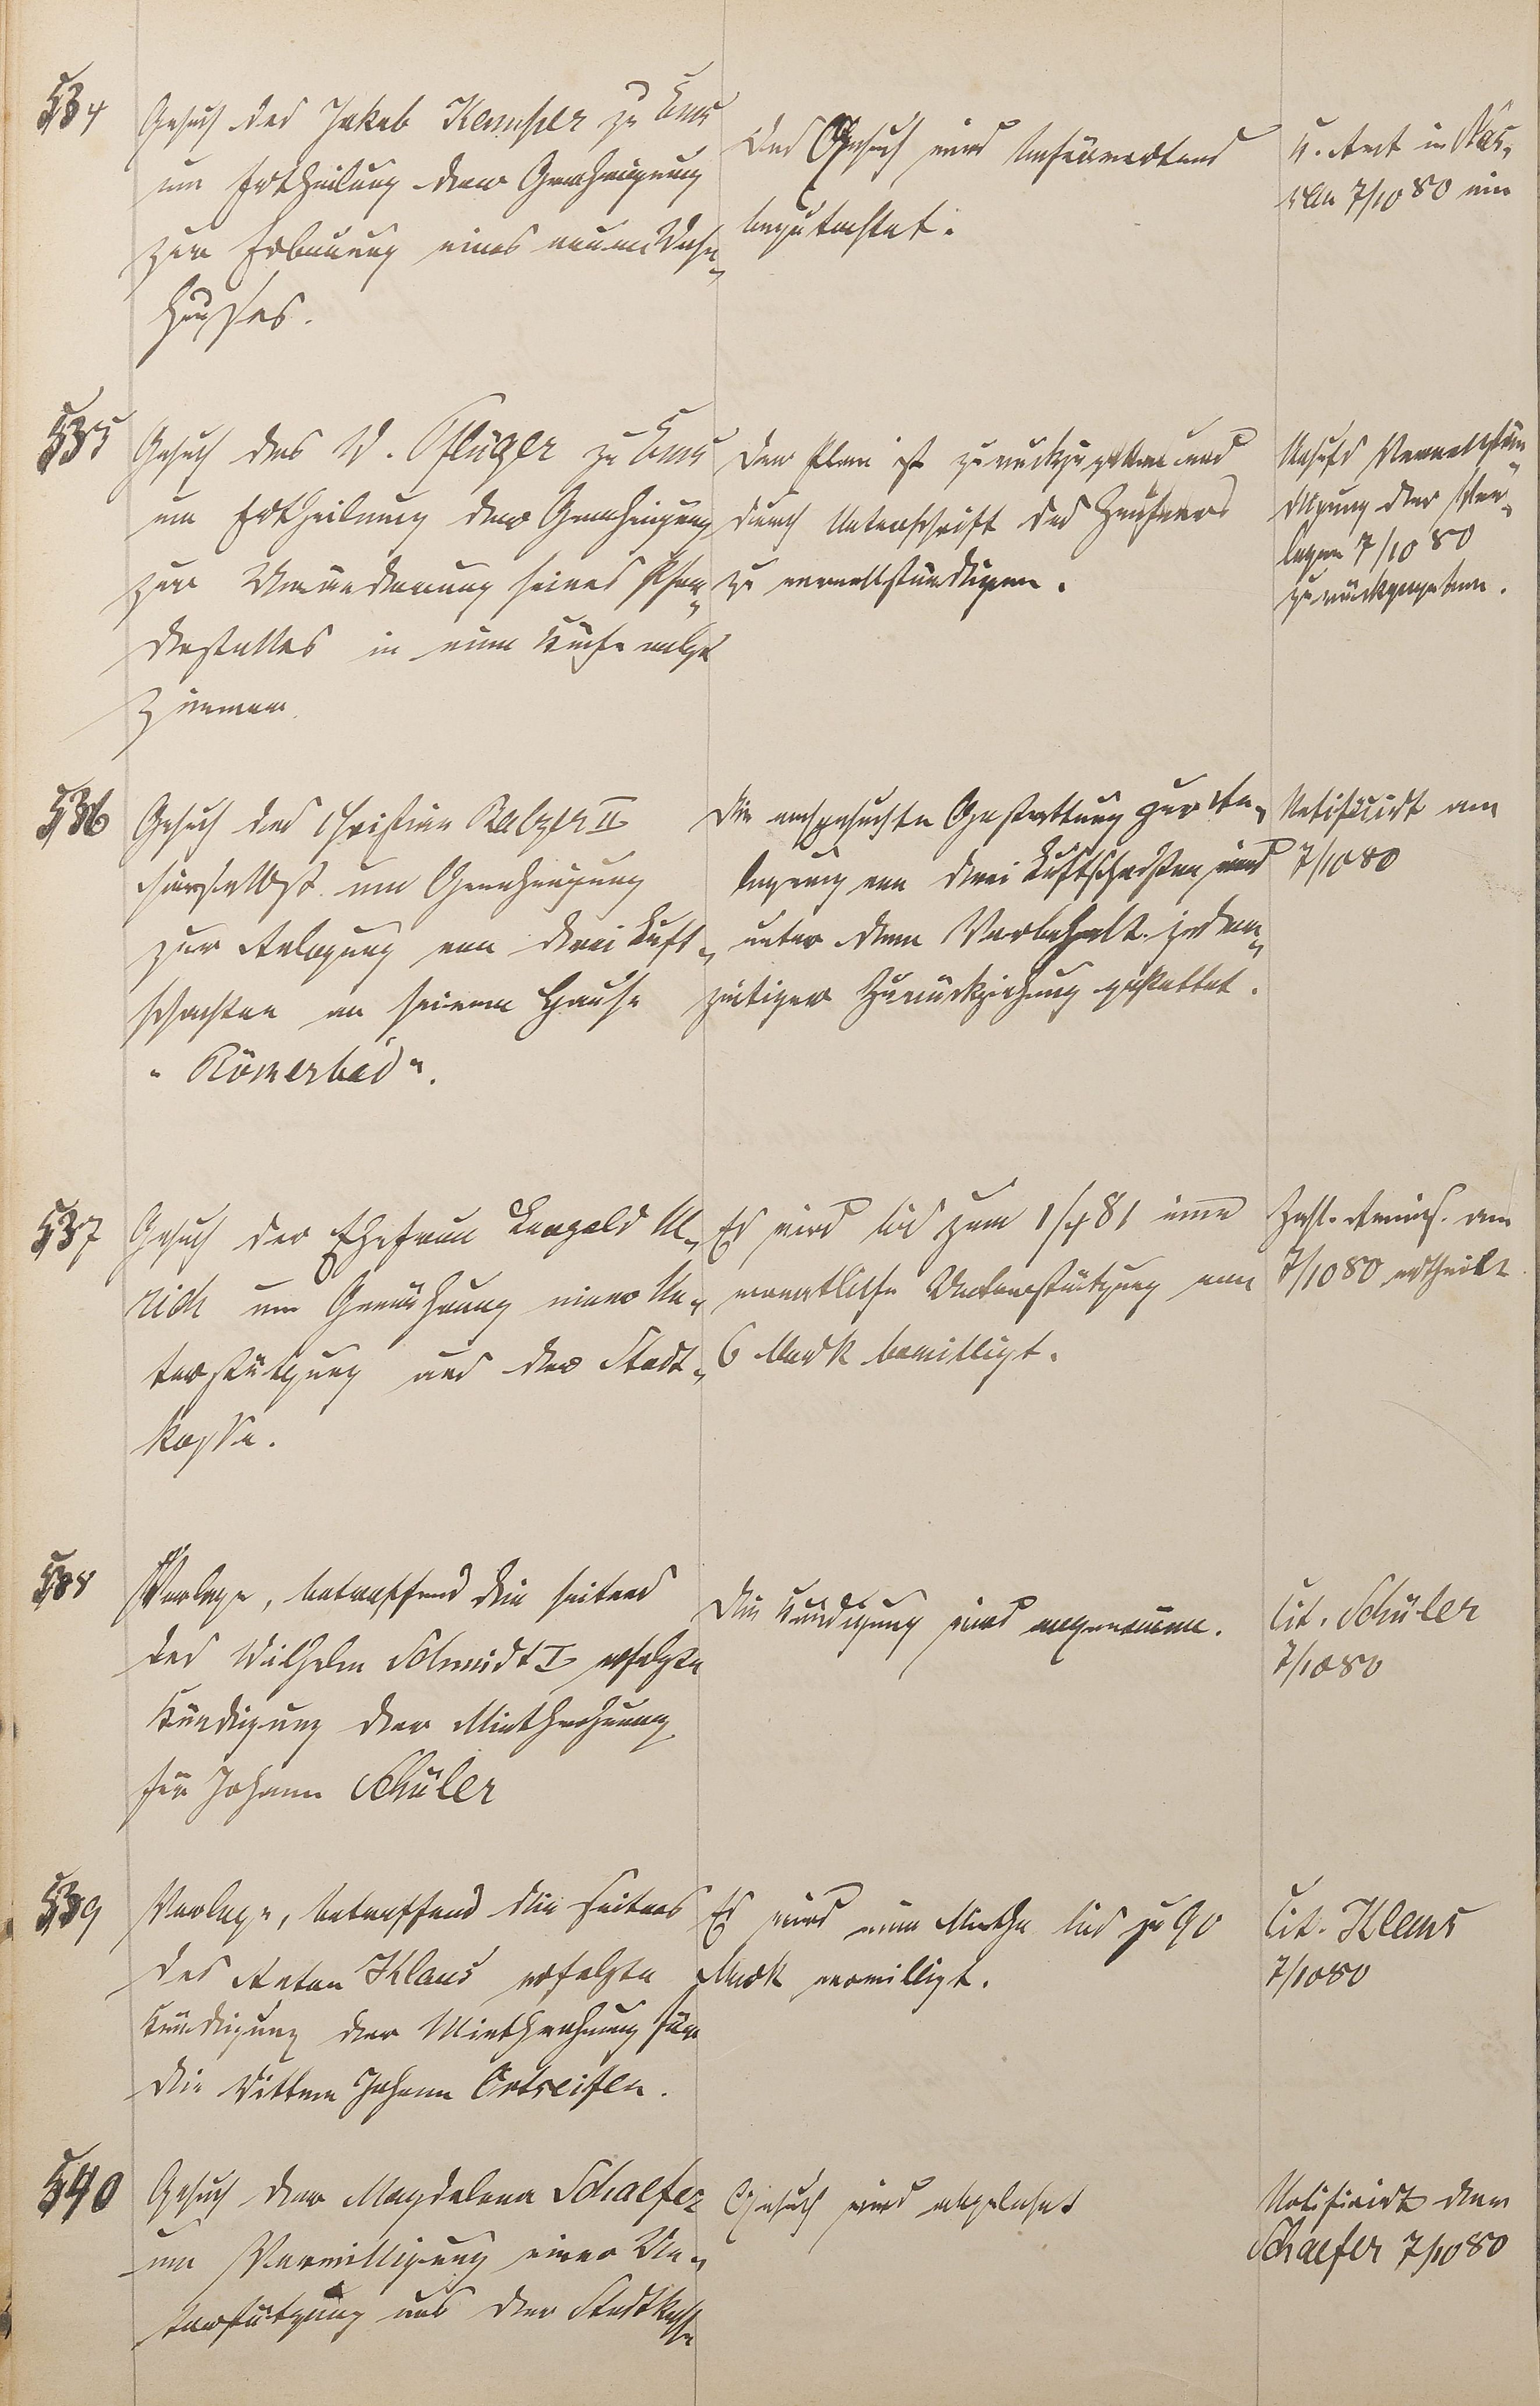 534
Gesuch des Jakob Kemper zu Ems
um Ertheilung der Genehmigung
zur Erbauung eines neuen Wohn-
hauses.
Das Gesuch wird befürwortend
begutachtet.
K. Amt in Nas-
sau 7/10 80 ein
535
Gesuch des W. Pflüger zu Ems
um Ertheilung der Genehmigung
zur Umänderung seines Pfer-
destalles in eine Küche nebst
Zimmer.
Der Plan ist zurückzugeben und
durch Unterschrift des Zeichners
zu vervollständigen.
Behufs Vervollstän-
digung der Vor-
lagen 7/10 80
zurückgegeben.
536
Gesuch des Christian Balzer II
hierselbst um Genehmigung
zur Anlegung von drei Luft-
schachten an seinem Hause
"Römerbad".
Die nachgesuchte Gestattung zur An-
legung von drei Luftschachten wird
unter dem Vorbehalt jeder-
zeitiger Zurückziehung gestattet.
Notificirt am
7/10 80
537
Gesuch der Ehefrau Leopold Ul-
rich um Gewährung einer Un-
terstützung aus der Stadt-
kasse.
Es wird bis zum 1/4 81 eine
monatliche Unterstützung von
6 Mark bewilligt.
Zahl. Anweis. am
7/10 80 ertheilt
538
Vorlage, betreffend die seitens
des Wilhelm Schmidt I erfolgte
Kündigung der Miethwohnung
für Johann Schüler
Die Kündigung wird angenommen.
Cit. Schüler
7/10 80
539
Vorlage, betreffend die seitens
des Anton Klaus erfolgte
Kündigung der Miethwohnung für
die Wittwe Johann Ortseifen.
Es wird eine Miethe bis zu 90
Mark verwilligt.
Cit. Klaus
7/10 80
540
Gesuch der Magdalena Schaefer
um Verwilligung einer Un-
terstützung aus der Stadtkasse
Gesuch wird abgelehnt
Notificirt der
Schaefer 7/10 80